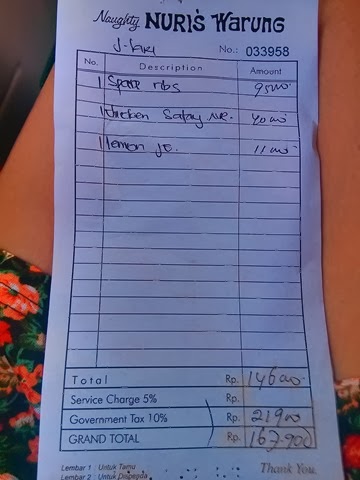 Naughty NURI'S WARUNG
No.: 033958
No. Description Amount
1 Spare ribs 95000
1 Chicken Satay 40000
1 lemon 11000
Total Rp. 146000
Service Charge 5% Rp.
Government Tax 10% Rp. 21900
GRAND TOTAL Rp. 167.900
Lembar 1 : Untuk Tamu
Thank You
Lembar 2 : Untuk Dispenda